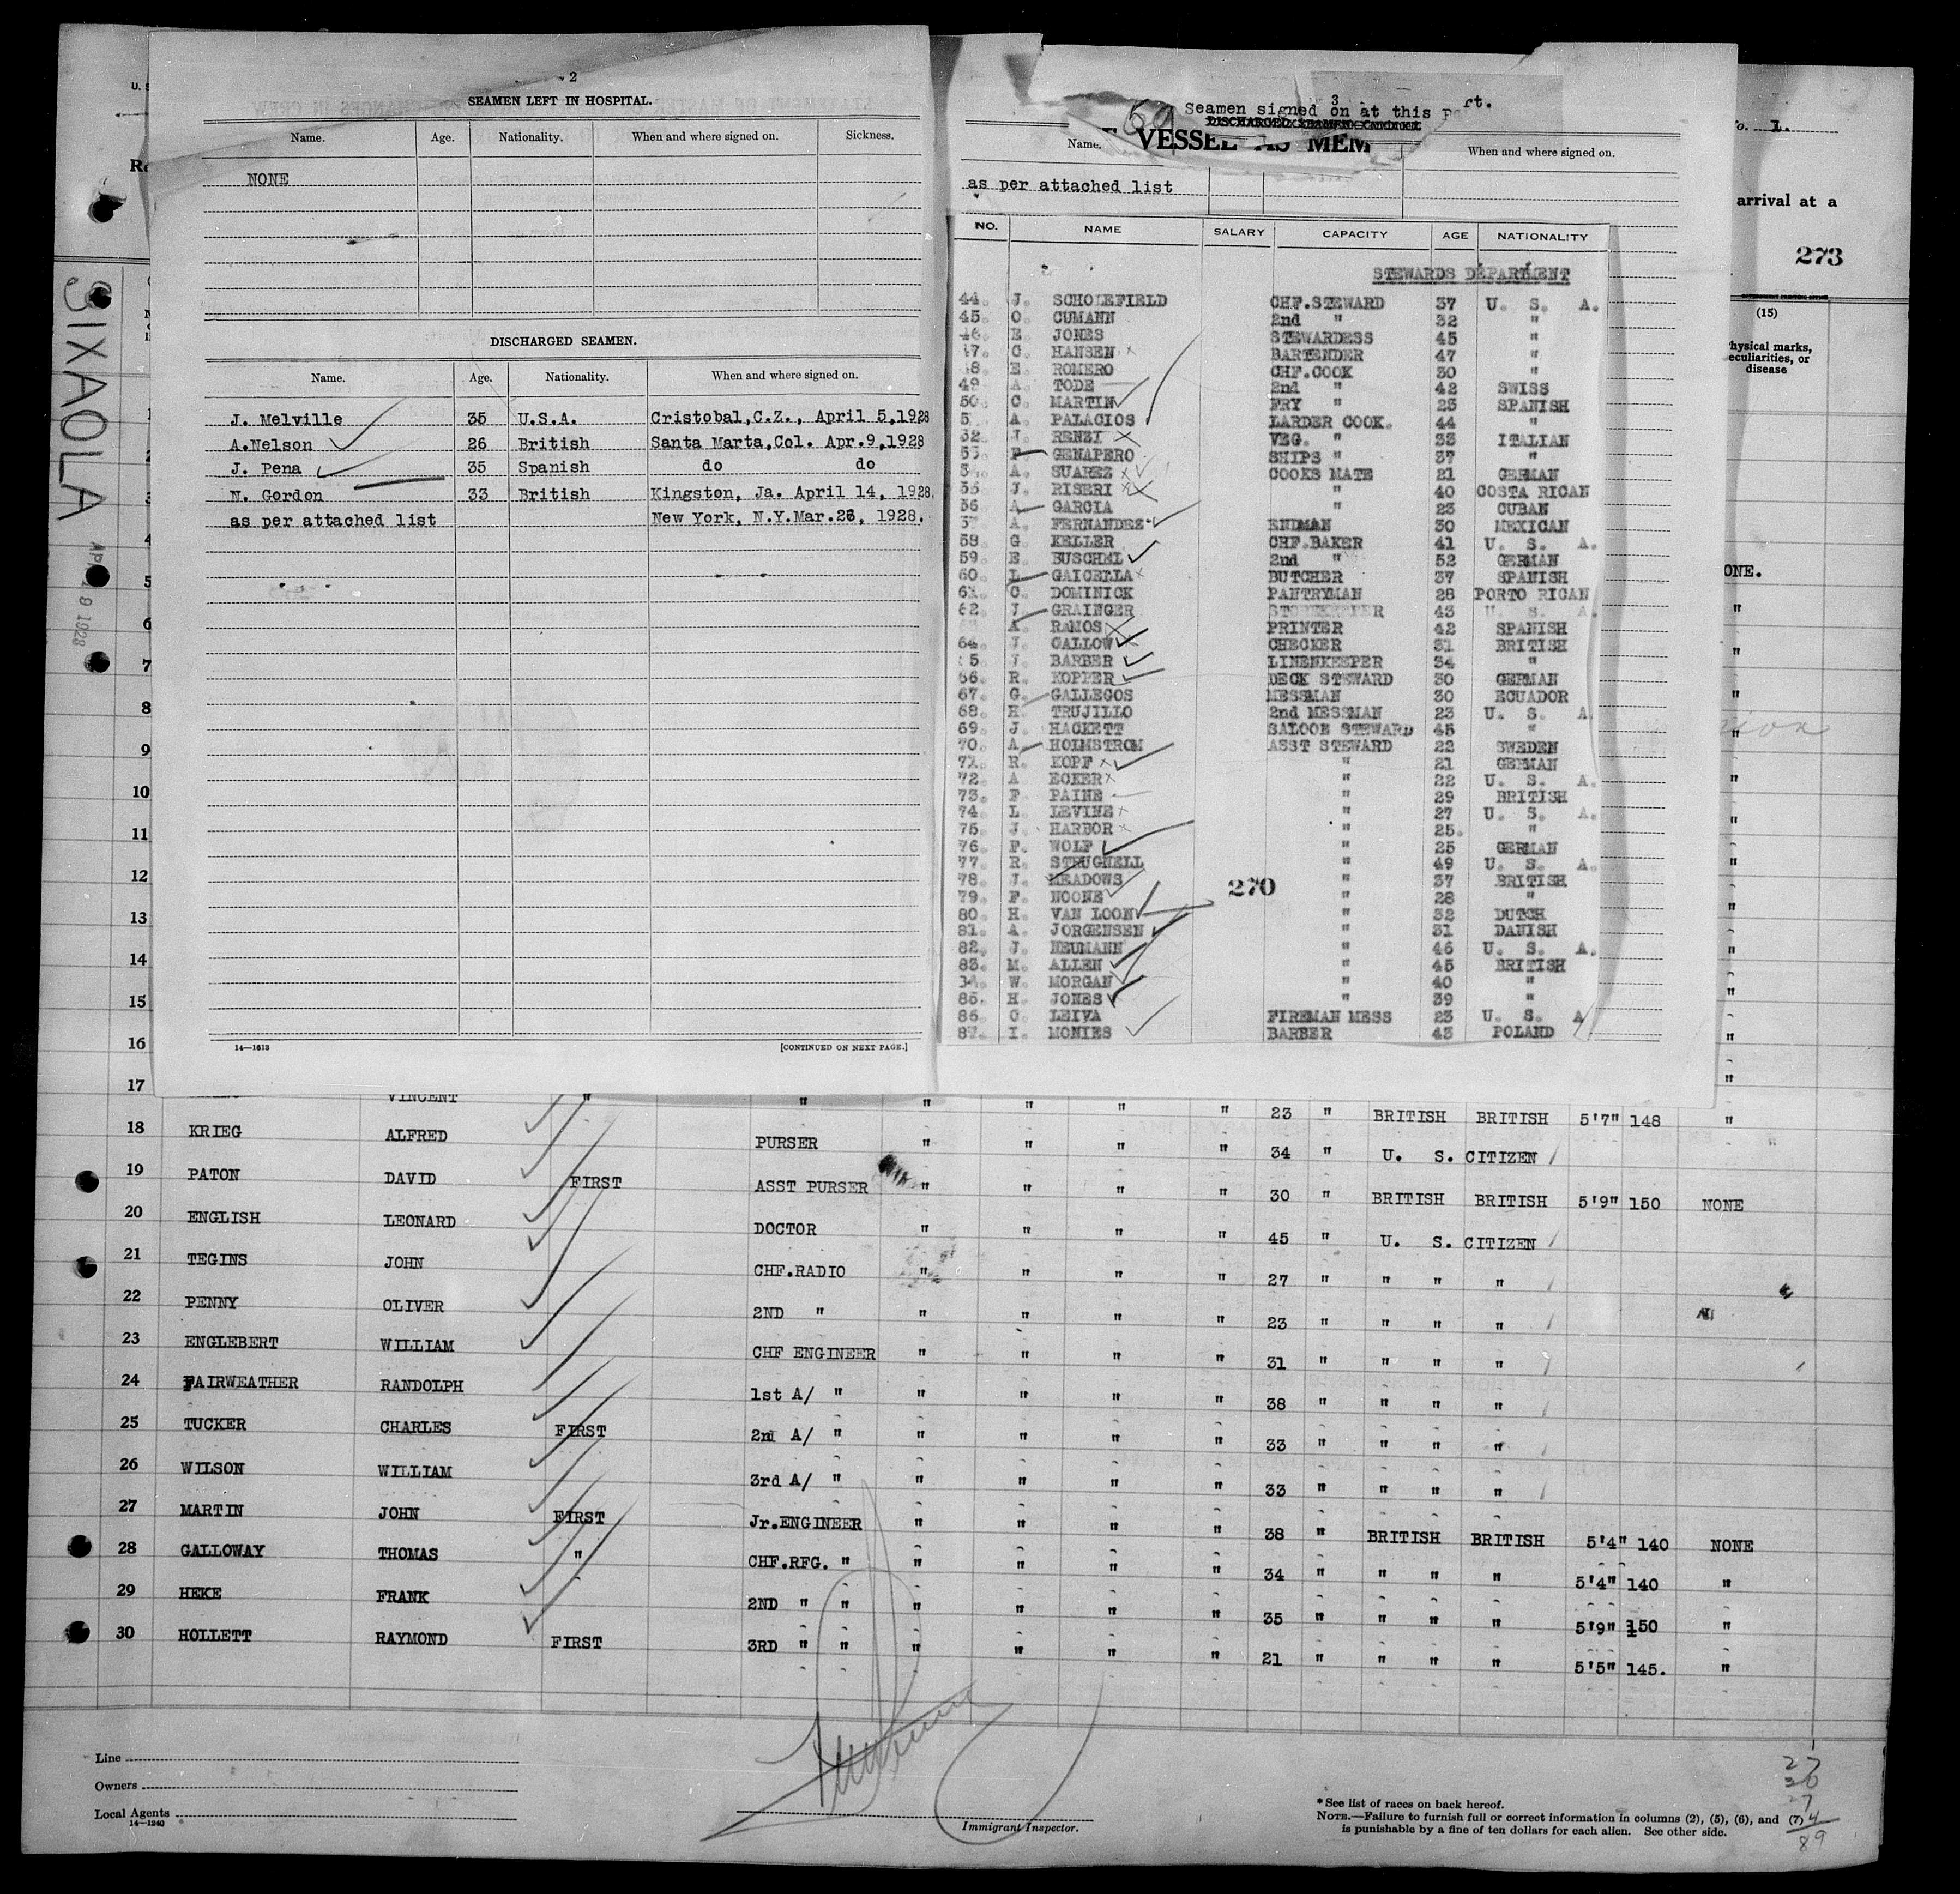 2
SEAMEN LEFT IN HOSPITAL.
Name. Age. Nationality. When and where signed on. Sickness.
NONE
DISCHARGED SEAMEN.
Name. Age. Nationality. When and where signed on.
J. Melville 35 U.S.A. Cristobal,C.Z., April 5,1928
A.Nelson 26 British Santa Marta,Col. Apr.9,1928
J. Pena 35 Spanish do do
N. Gordon 33 British Kingston, Ja. April 14, 1928.
as per attached list New York, N.Y.Mar.26, 1928.
14—1613 [CONTINUED ON NEXT PAGE.]
3
Seamen signed on at this rt.
69
VESSEL AS MEM
Name. When and where signed on.
as per attached list
NO. NAME SALARY CAPACITY AGE NATIONALITY
STEWARDS DEPARTMENT
44. J. SCHOLEFIELD CHF.STEWARD 37 U. S. A.
45. O. CUMANN 2nd " 32 "
46. E. JONES STEWARDESS 45 "
47. C. HANSEN BARTENDER 47 "
48. E. ROMERO CHF.COOK 30 "
49. A. TODE 2nd " 42 SWISS
50. C. MARTIN FRY " 23 SPANISH
5 A. PALACIOS LARDER COOK. 44 "
52. J. RENZI VEG. " 33 ITALIAN
53. F GENAPERO SHIPS " 37 "
5 A. SUAREZ COOKS MATE 21 GERMAN
55. J. RISERI " 40 COSTA RICAN
56 A. GARCIA " 23 CUBAN
57. A. FERNANDEZ ENDMAN 30 MEXICAN
58. G. KELLER CHF.BAKER 41 U. S. A.
59. E BUSCHEL 2nd " 52 GERMAN
60. L GAICELLA BUTCHER 37 SPANISH
61. C. DOMINICK PANTRYMAN 28 PORTO RICAN
62. J. GRAINGER STOREKEEPER 43 U. S. A.
A. RAMOS PRINTER 42 SPANISH
64. J. GALLOW CHECKER 31 BRITISH
65. J. BARBER LINENKEEPER 34 "
66. R. KOPPER DECK STEWARD 30 GERMAN
67. G. GALLEGOS MESSMAN 30 ECUADOR
68. H. TRUJILLO 2nd MESSMAN 23 U. S. A.
69. J. HACKETT SALOON STEWARD 45 "
70. A. HOLMSTROM ASST STEWARD 22 SWEDEN
71. R. KOPF " 21 GERMAN
72. A ECKER " 22 U. S. A.
73. F. PAINE " 29 BRITISH
74. L. LEVINE " 27 U. S. A.
75. J. HARBOR " 25. "
76. F. WOLF " 25 GERMAN
77. R. STRUGNELL " 49 U. S. A.
78. J. MEADOWS " 37 BRITISH
79. F. NOONE " 28 "
270
80. H. VAN LOON " 32 DUTCH
81. A. JORGENSEN " 31 DANISH
82. J. NEUMANN " 46 U. S. A.
83. M. ALLEN " 45 BRITISH
84. W. MORGAN " 40 "
85. H. JONES " 39 "
86. C. LEIVA FIREMAN MESS 23 U. S. A
87. I. MONIES BARBER 43 POLAND
1.
arrival at a
273
(15)
hysical marks,
eculiarities, or
disease
ONE.
SIXAOLA
1928
1
2
3
4
5
6
7
8
9
10
11
12
13
14
15
16
17
VINCENT " " " " " " 23 " BRITISH BRITISH 5'7" 148 "
18 KRIEG ALFRED PURSER " " " " 34 " U. S. CITIZEN
19 PATON DAVID FIRST ASST PURSER " " " " 30 " BRITISH BRITISH 5'9" 150 NONE
20 ENGLISH LEONARD DOCTOR " " " " 45 " U. S. CITIZEN
21 TEGINS JOHN CHF.RADIO " " " " 27 " " " "
22 PENNY OLIVER 2ND " " " " " 23 " " " "
23 ENGLEBERT WILLIAM CHF ENGINEER " " " " 31 " " " "
24 FAIRWEATHER RANDOLPH 1st A/ " " " " " 38 " " " "
25 TUCKER CHARLES FIRST 2nd A/ " " " " " 33 " " " "
26 WILSON WILLIAM 3rd A/ " " " " " 33 " " " "
27 MARTIN JOHN FIRST Jr.ENGINEER " " " " 38 " BRITISH BRITISH 5'4" 140 NONE
28 GALLOWAY THOMAS " CHF.RFG. " " " " " 34 " " " " 5'4" 140 "
29 HEKE FRANK 2ND " " " " " " 35 " " " " 5'9" 150 "
30 HOLLETT RAYMOND FIRST 3RD " " " " " " 21 " " " " 5'5" 145. "
Line
Owners
Local Agents
14—1240
Immigrant Inspector.
*See list of races on back hereof.
NOTE.—Failure to furnish full or correct information in columns (2), (5), (6), and (7)
is punishable by a fine of ten dollars for each alien. See other side.
27
30
89